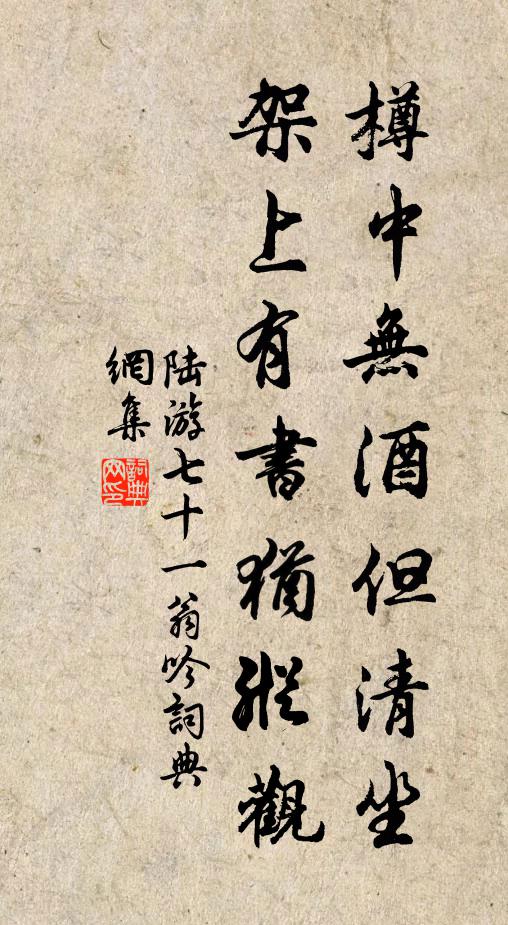 樽中無酒但清坐
架上有書猶縱觀
陆游七十一翁吟詞典
網集
詞典
网印